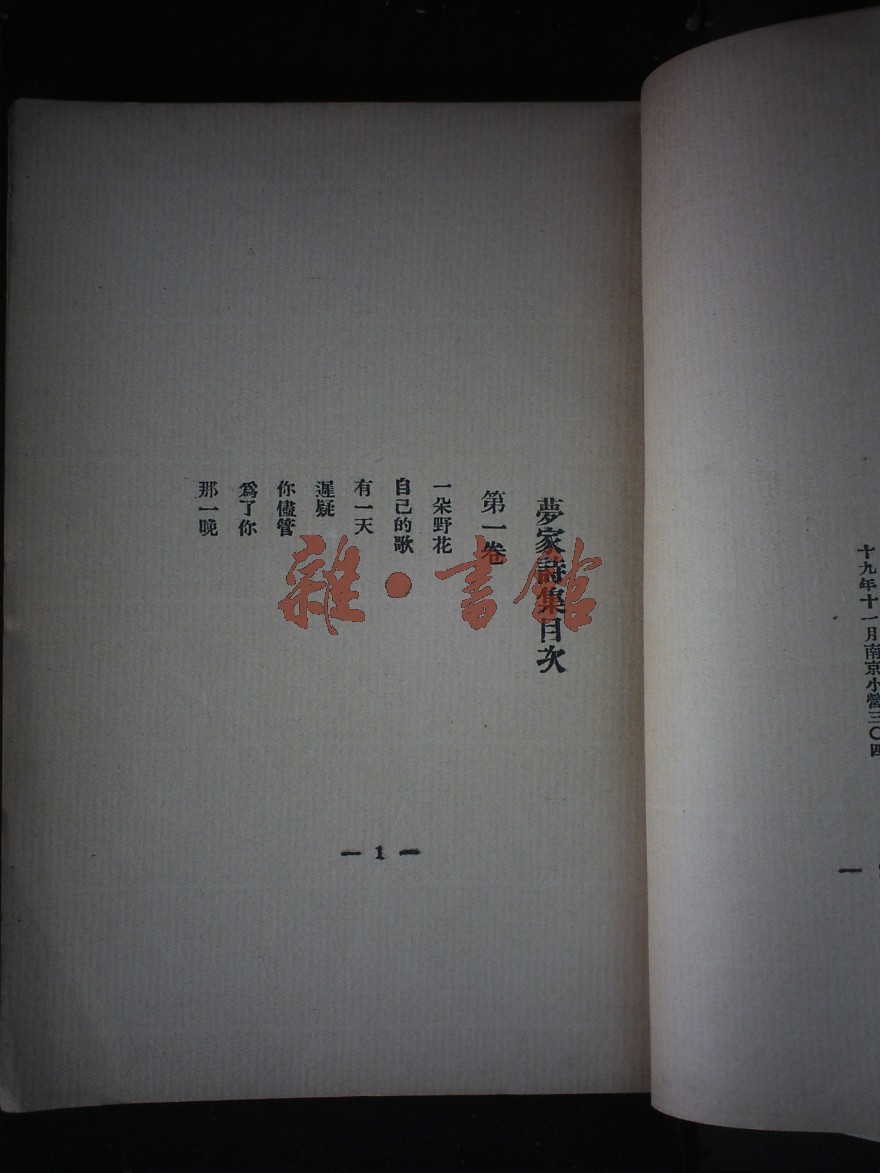 十九年十一月南京小營三〇四
夢家詩集目次
第一卷
一朵野花
自己的歌
有一天
遲疑
你儘管
爲了你
那一晚
— 1 —
雜·書館